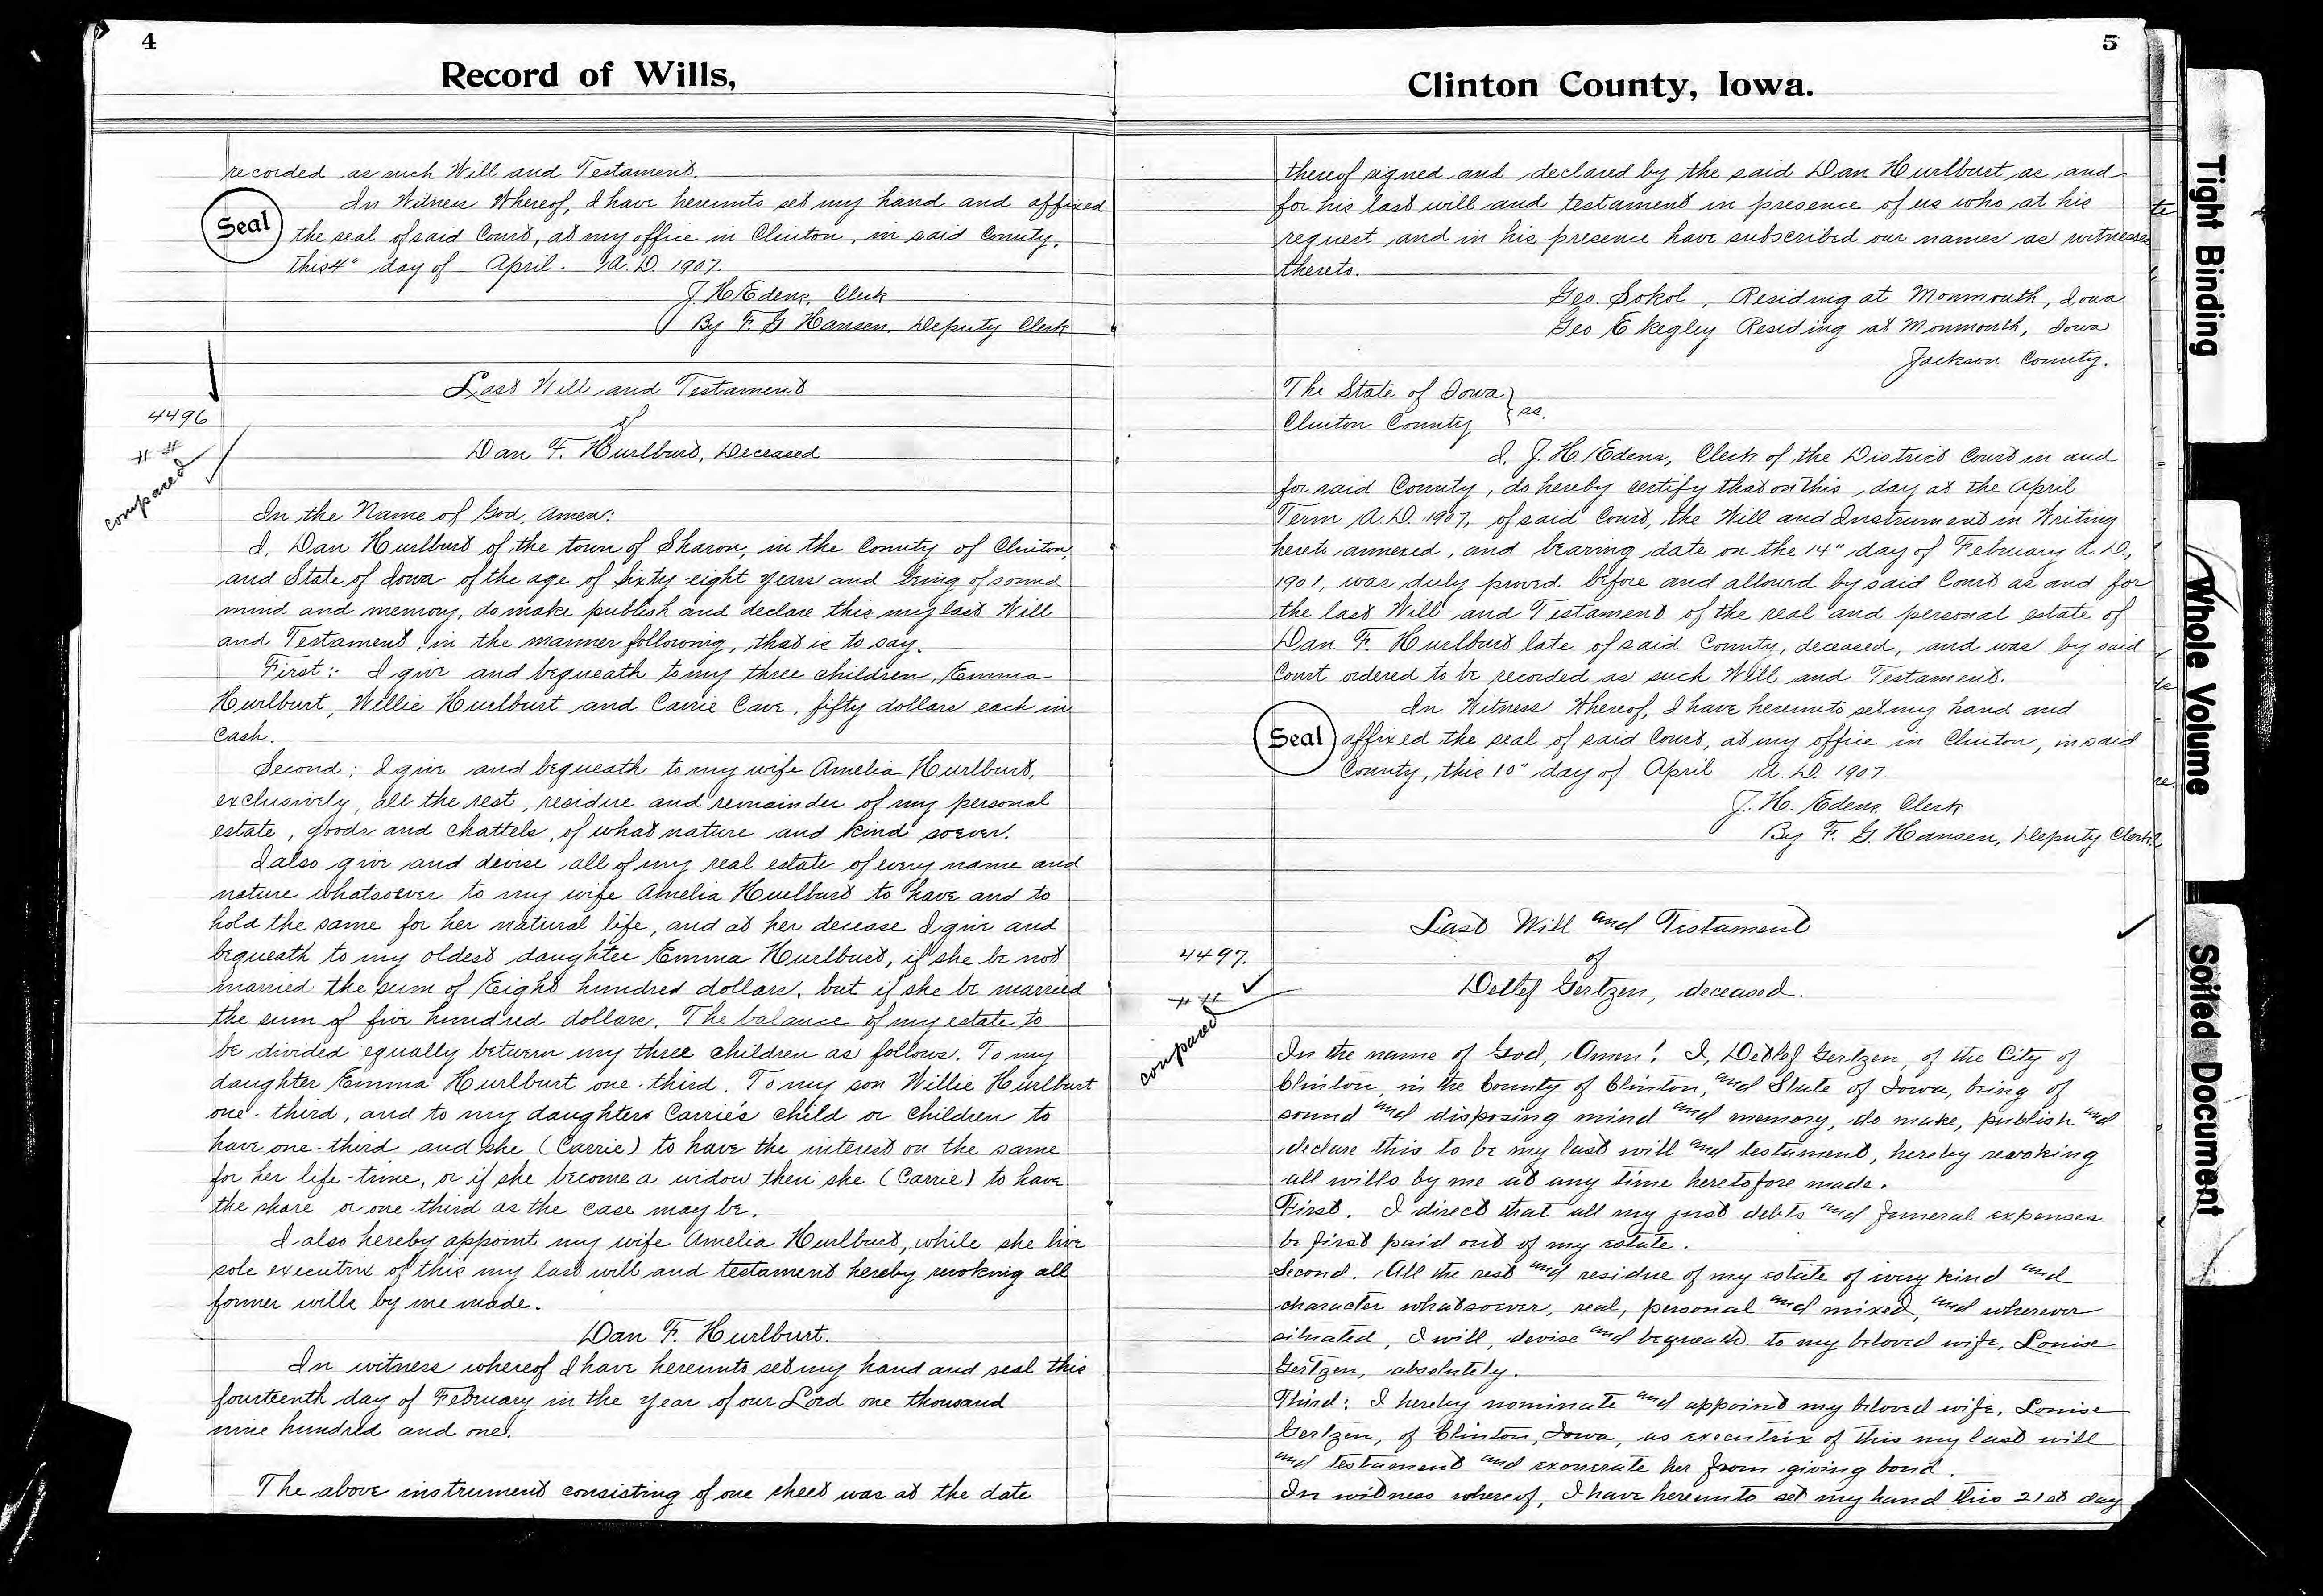 4
Record of Wills,
recorded as such Will and Testament.
In Witness Whereof, I have hereunto set my hand and affixed
Seal
the seal of said Court, at my office in Clinton, in said County,
this 4" day of April. A.D. 1907.
J. H. Edens, Clerk
By F. G. Hansen, Deputy Clerk
Last Will and Testament
4496
of
Dan F. Hurlburt, Deceased
compared
In the Name of God, Amen:
I, Dan Hurlburt of the town of Sharon, in the County of Clinton,
and State of Iowa of the age of Sixty-eight years and being of sound
mind and memory, do make publish and declare this my last Will
and Testament, in the manner following, that is to say.
First:- I give and bequeath to my three children, Emma
Hurlburt, Willie Hurlburt and Carrie Cave, fifty dollars each in
Cash.
Second; I give and bequeath to my wife Amelia Hurlburt,
exclusively, all the rest, residue and remainder of my personal
estate, goods and chattels, of what nature and kind soever.
I also give and devise all of my real estate of every name and
nature whatsoever to my wife Amelia Hurlburt to have and to
hold the same for her natural life, and at her decease I give and
bequeath to my oldest daughter Emma Hurlburt, if she be not
married the sum of Eight hundred dollars, but if she be married
the sum of five hundred dollars. The balance of my estate to
be divided equally between my three children as follows. To my
daughter Emma Hurlburt one-third. To my son Willie Hurlburt
one-third, and to my daughters Carrie's child or children to
have one-third and she (Carrie) to have the interest on the same
for her life-time, or if she become a widow then she (Carrie) to have
the share or one-third as the case may be.
I also hereby appoint my wife Amelia Hurlburt, while she live
sole executrix of this my last will and testament hereby revoking all
former wills by me made.
Dan F. Hurlburt.
In witness whereof I have hereunto set my hand and seal this
fourteenth day of February in the year of our Lord one thousand
nine hundred and one.
The above instrument consisting of one sheet was at the date
5
Clinton County, Iowa.
thereof signed and declared by the said Dan Hurlburt as and
for his last will and testament in presence of us who at his
request and in his presence have subscribed our names as witnesses
thereto.
Geo. Sokol, Residing at Monmouth, Iowa
Geo E Kegley Residing at Monmouth, Iowa
Jackson County.
The State of Iowa }
Clinton County } ss.
I, J. H. Edens, Clerk of the District Court in and
for said County, do hereby certify that on this day at the April
Term A.D. 1907, of said Court, the Will and Instrument in Writing
hereto annexed, and bearing date on the 14" day of February A.D.,
1901, was duly proved before and allowed by said Court as and for
the last Will and Testament of the real and personal estate of
Dan F. Hurlburt late of said County, deceased, and was by said
Court ordered to be recorded as such Will and Testament.
In Witness Whereof, I have hereunto set my hand and
Seal
affixed the seal of said Court, at my office in Clinton, in said
County, this 10" day of April A.D. 1907.
J. H. Edens, Clerk
By F. G. Hansen, Deputy Clerk
Last Will and Testament
4497.
of
Detlef Gertzen, deceased.
compared
In the name of God, Amen! I, Detlef Gertzen, of the City of
Clinton, in the County of Clinton, and State of Iowa, being of
sound and disposing mind and memory, do make, publish and
declare this to be my last will and testament, hereby revoking
all wills by me at any time heretofore made.
First. I direct that all my just debts and funeral expenses
be first paid out of my estate.
Second. All the rest and residue of my estate of every kind and
character whatsoever, real, personal and mixed, and wherever
situated, I will, devise and bequeath to my beloved wife, Louise
Gertzen, absolutely.
Third: I hereby nominate and appoint my beloved wife, Louise
Gertzen, of Clinton, Iowa, as executrix of this my last will
and testament and exonerate her from giving bond.
In witness whereof, I have hereunto set my hand this 21st day
Tight Binding
Whole Volume
Soiled Document